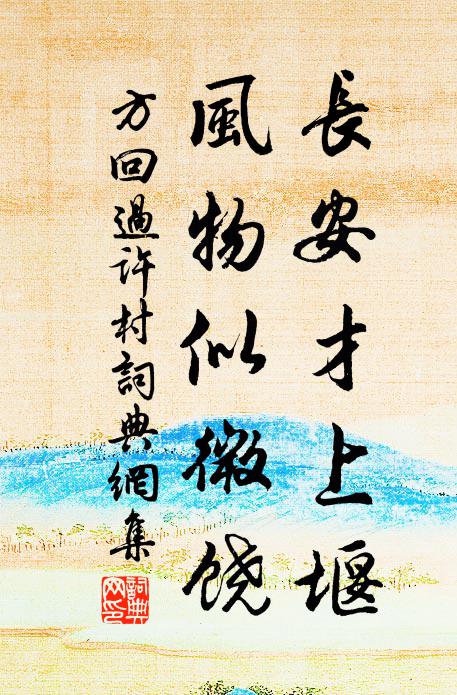 長安才上堰
風物似微饶
方回過许村詞典網集
詞典網印